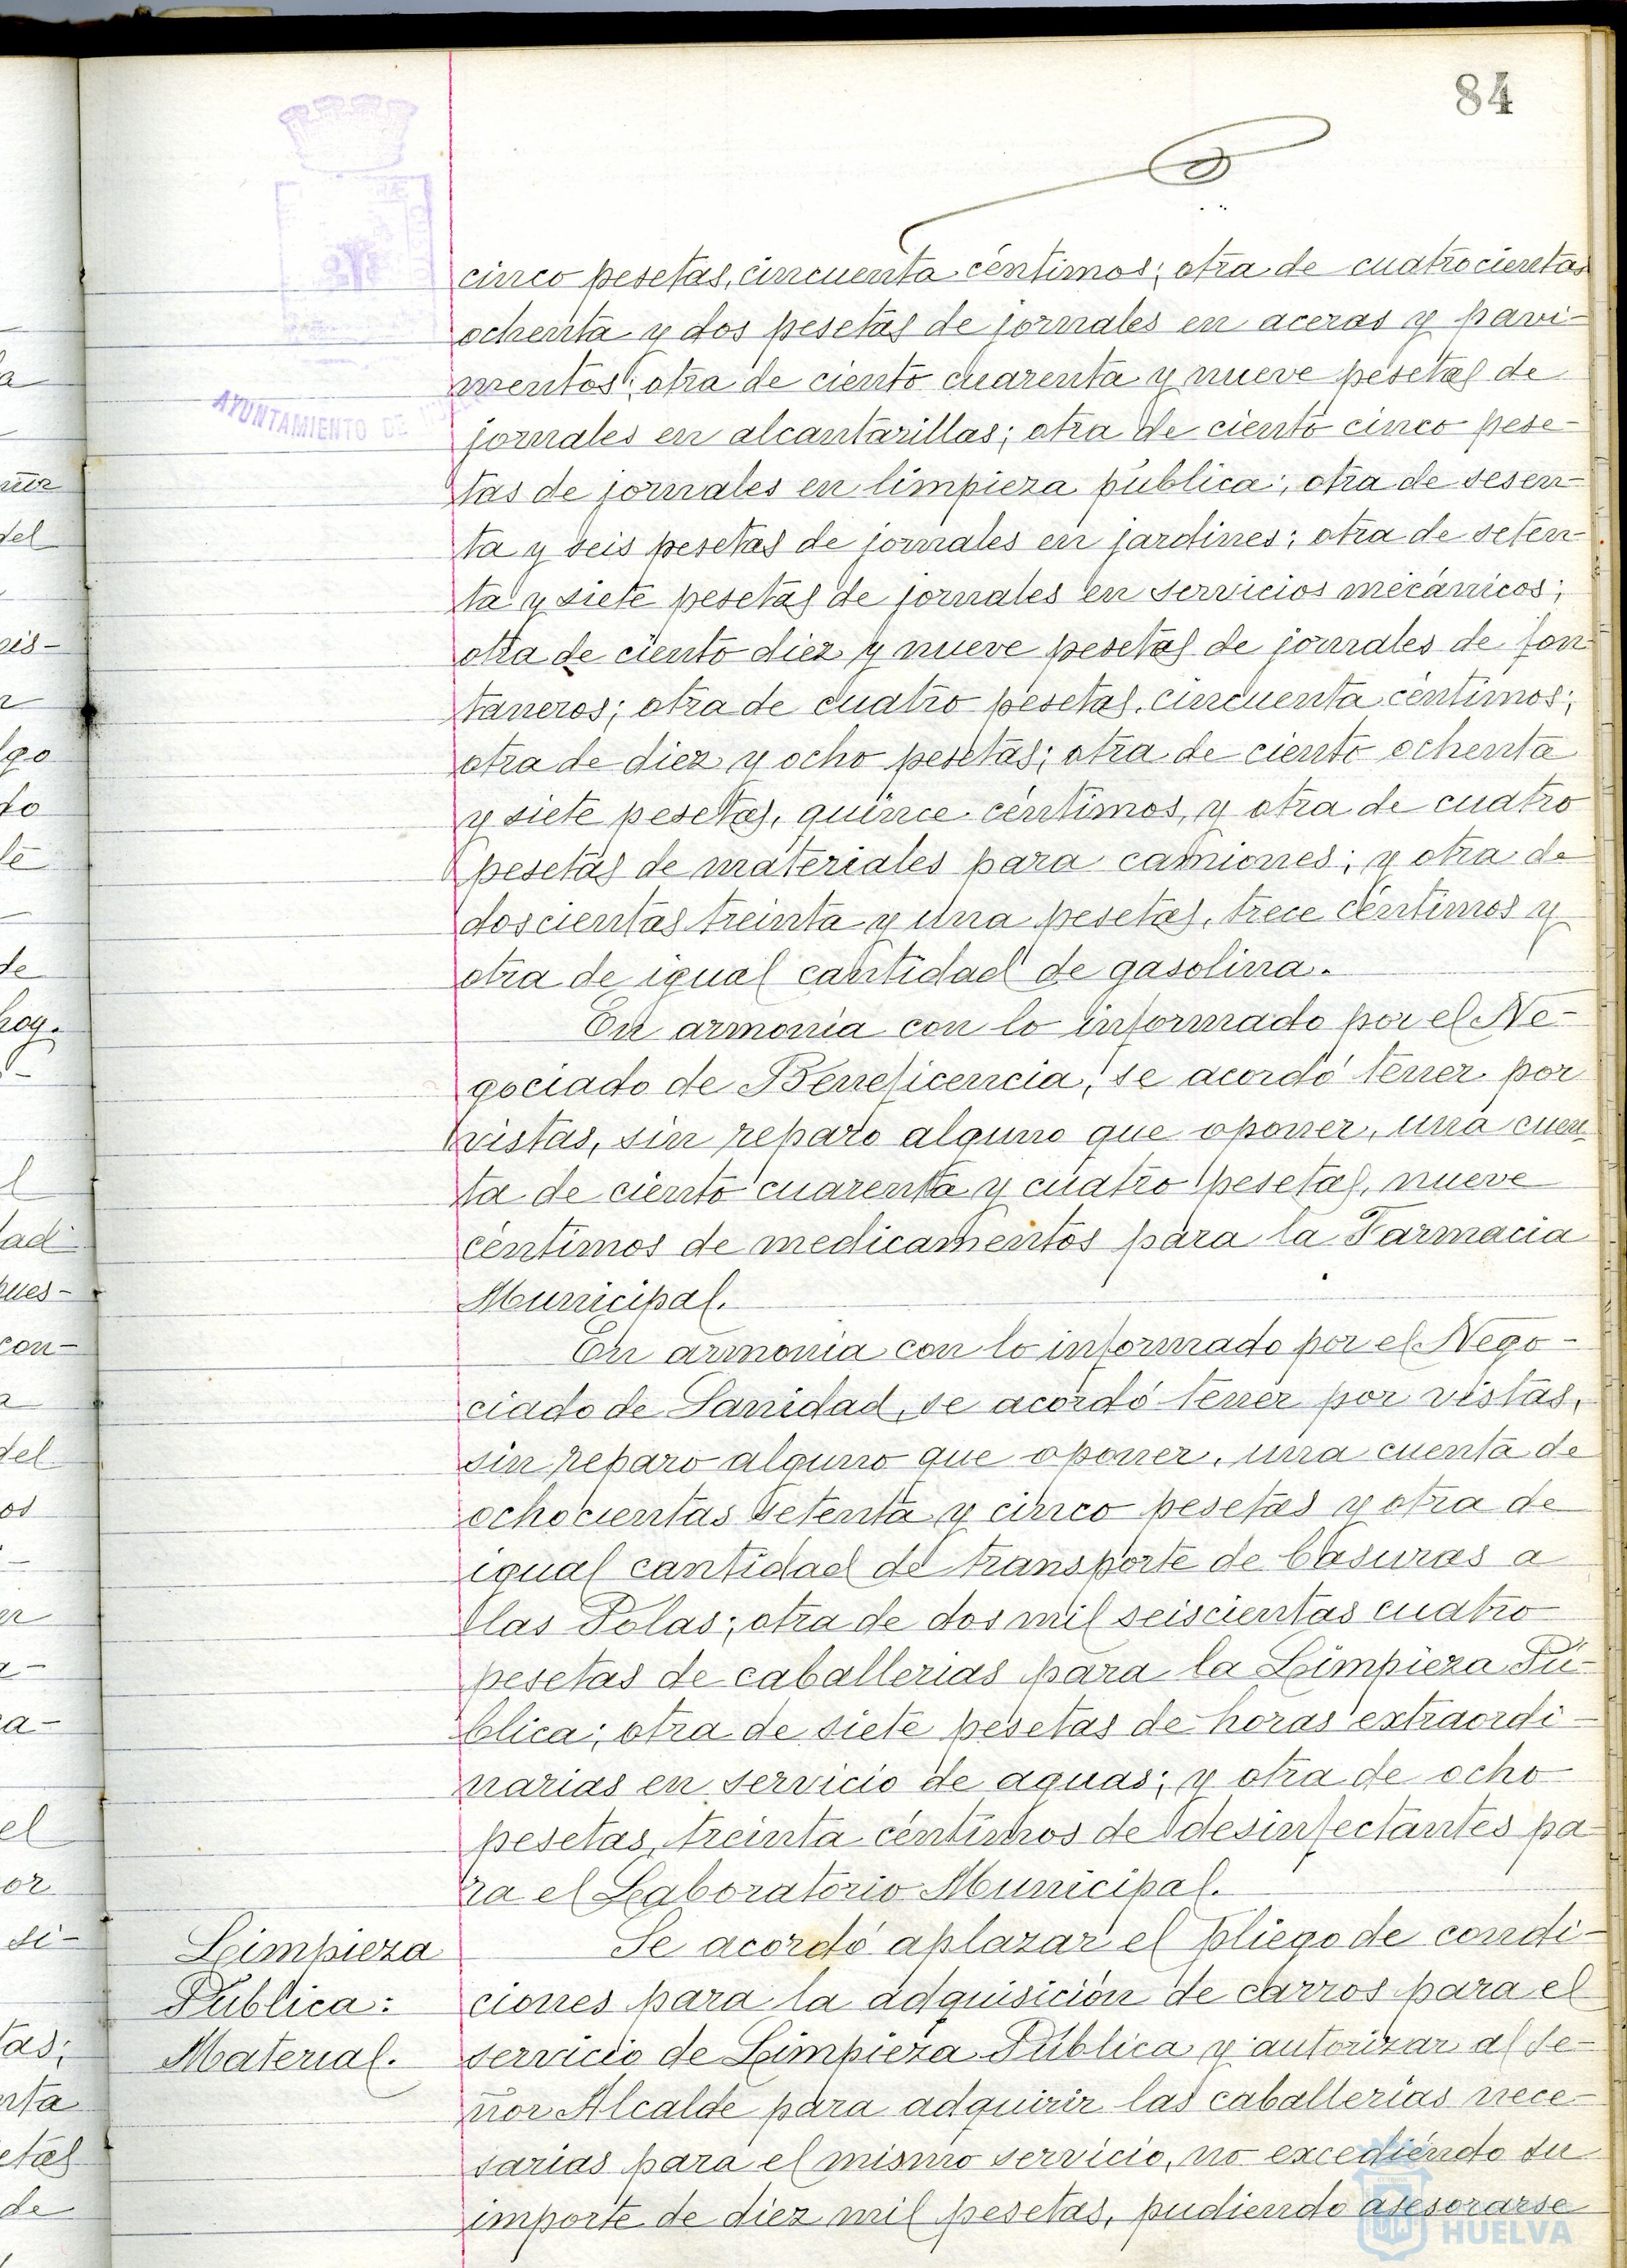 84
AYUNTAMIENTO DE
cinco pesetas, cincuenta céntimos; otra de cuatrocientas
ochenta y dos pesetas de jornales en aceras y pavi-
mentos; otra de ciento cuarenta y nueve pesetas de
jornales en alcantarillas; otra de ciento cinco pese-
tas de jornales en limpieza pública; otra de sesen-
ta y seis pesetas de jornales en jardines; otra de seten-
ta y siete pesetas de jornales en servicios mecánicos;
otra de ciento diez y nueve pesetas de jornales de fon-
taneros; otra de cuatro pesetas, cincuenta céntimos;
otra de diez y ocho pesetas; otra de ciento ochenta
y siete pesetas, quince céntimos, y otra de cuatro
pesetas de materiales para camiones; y otra de
doscientas treinta y una pesetas, trece céntimos y
otra de igual cantidad de gasolina.
En armonía con lo informado por el Ne-
gociado de Beneficencia, se acordó tener por
vistas, sin reparo alguno que oponer, una cuen-
ta de ciento cuarenta y cuatro pesetas, nueve
céntimos de medicamentos para la Farmacia
Municipal.
En armonía con lo informado por el Nego-
ciado de Sanidad, se acordó tener por vistas,
sin reparo alguno que oponer, una cuenta de
ochocientas setenta y cinco pesetas y otra de
igual cantidad de transporte de basuras a
las Polas; otra de dos mil seiscientas cuatro
pesetas de caballerias para la Limpieza Pú-
blica; otra de siete pesetas de horas extraordi-
narias en servicio de aguas; y otra de ocho
pesetas, treinta céntimos de desinfectantes pa-
ra el Laboratorio Municipal.
Limpieza
Pública:
Material.
Se acordó aplazar el pliego de condi-
ciones para la adquisición de carros para el
servicio de Limpieza Pública y autorizar al Se-
ñor Alcalde para adquirir las caballerías nece-
sarias para el mismo servicio, no excediendo su
importe de diez mil pesetas, pudiendo asesorarse
HUELVA